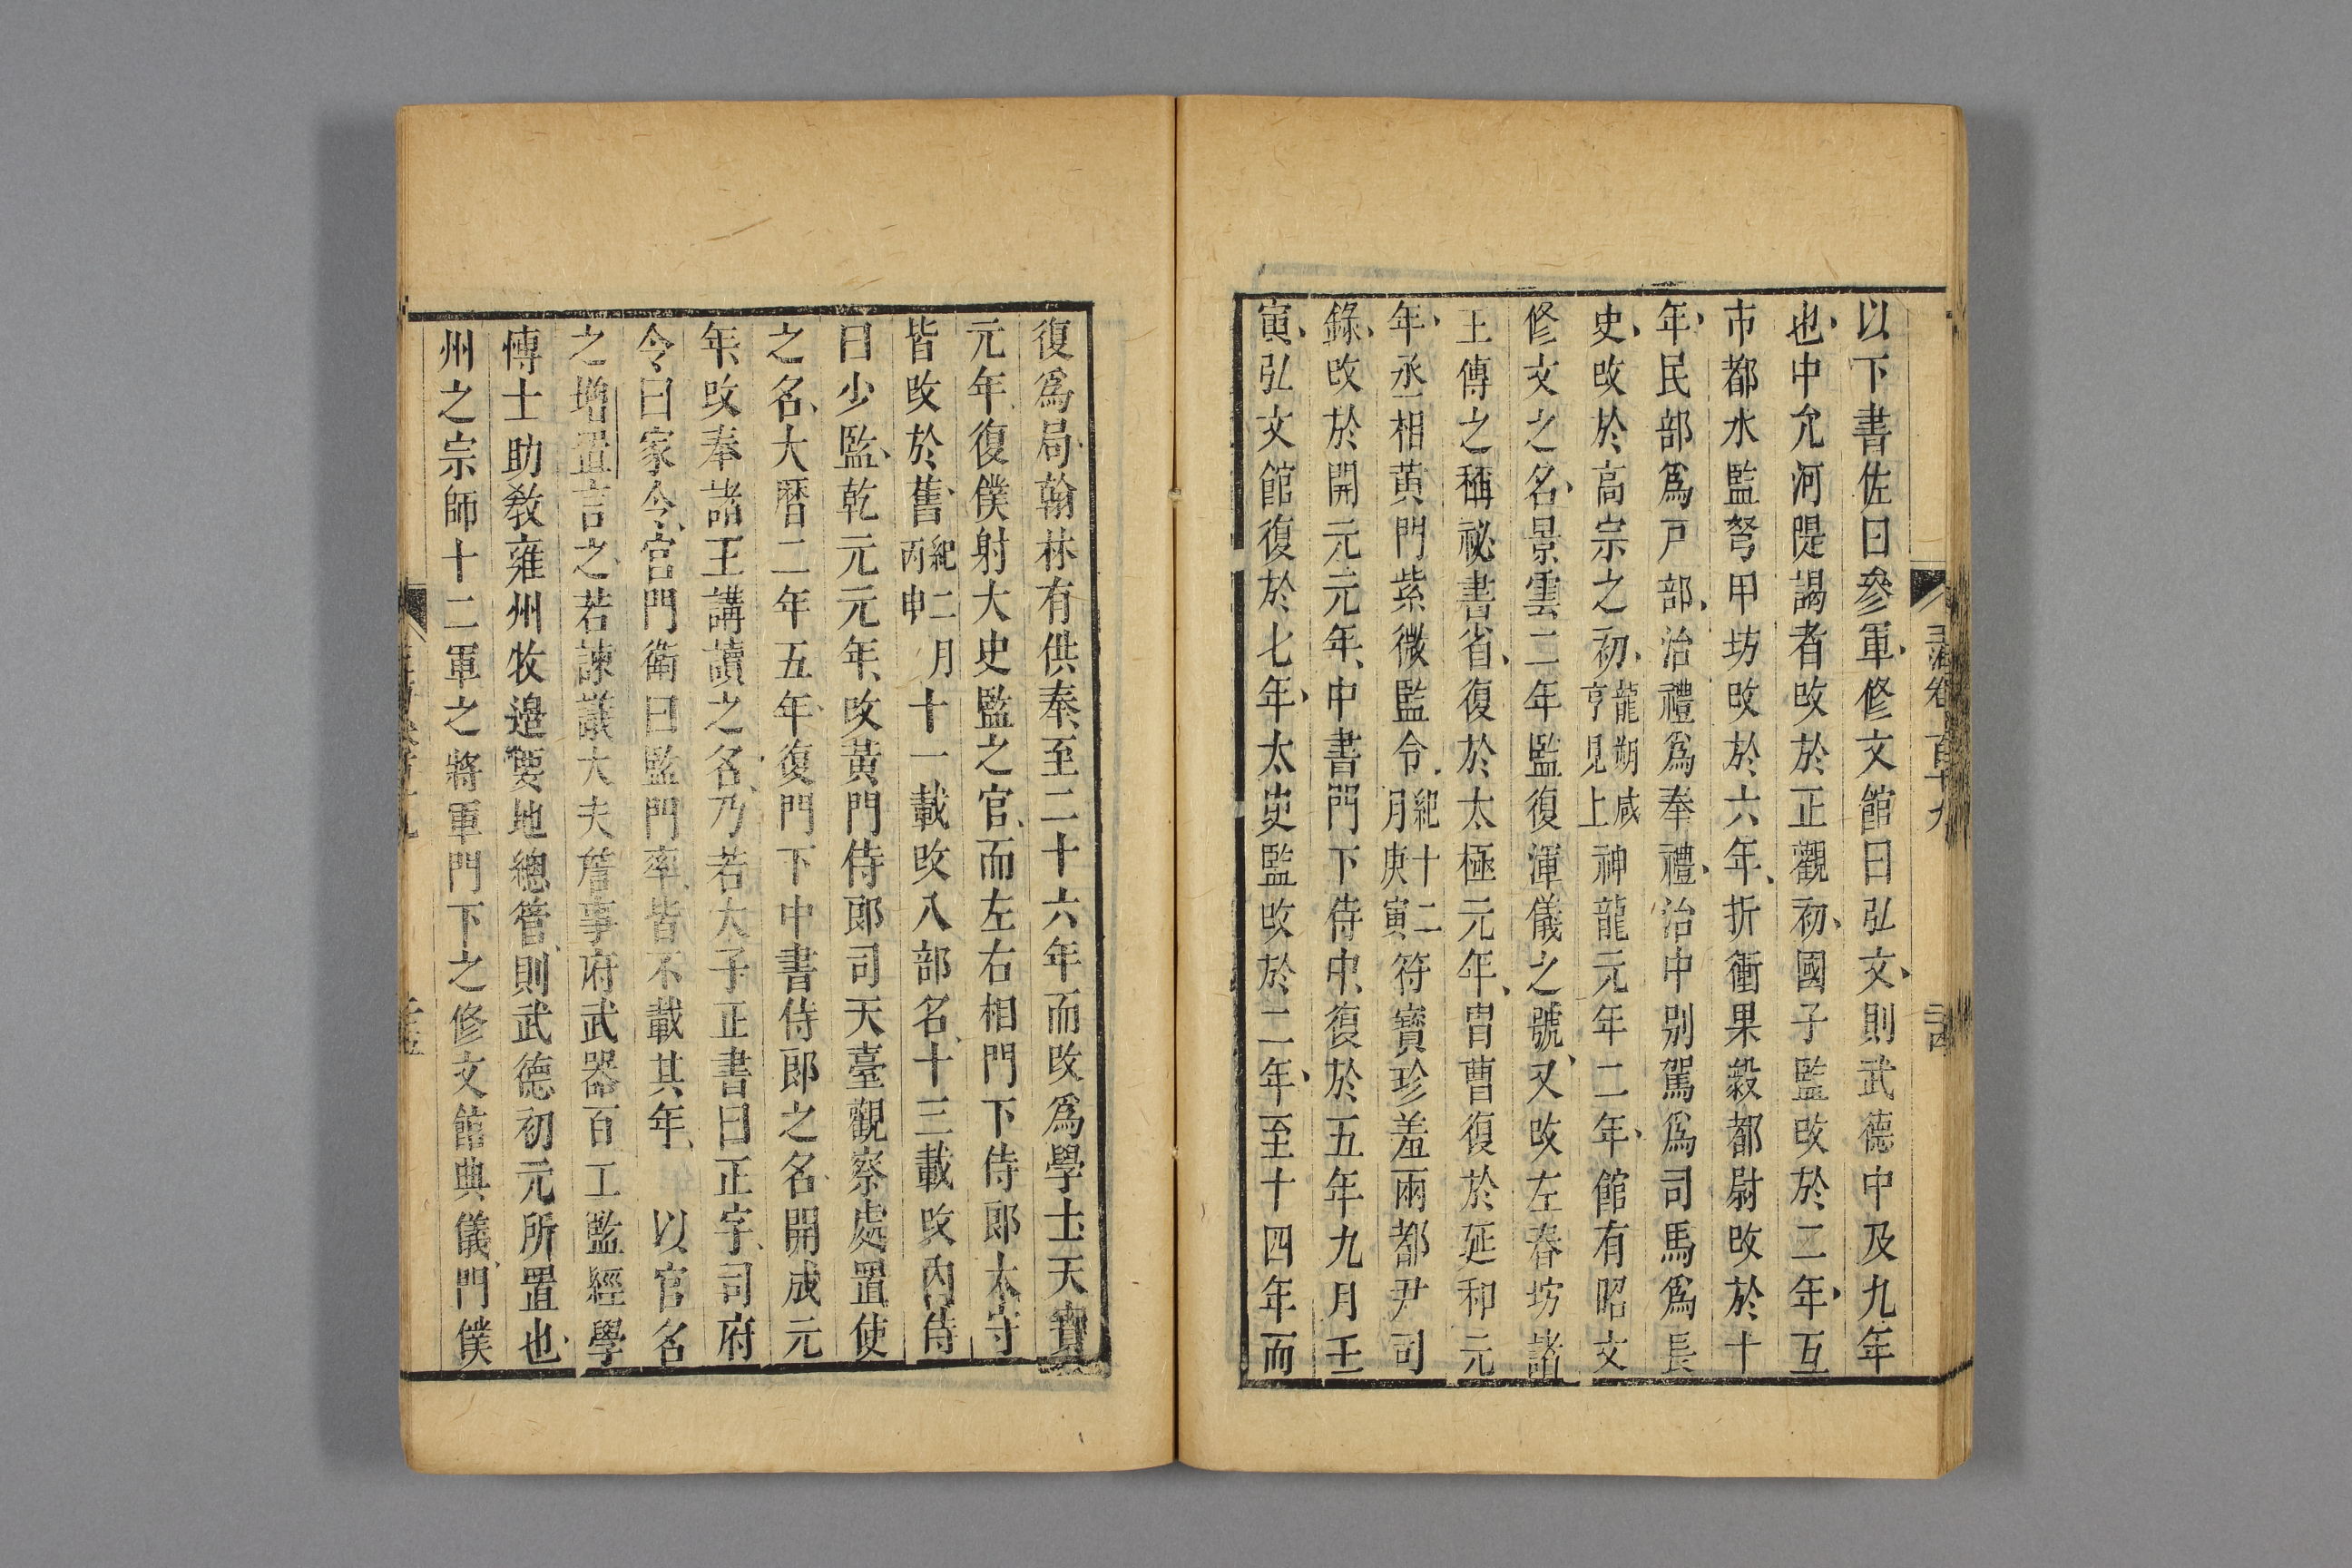 以下書佐曰參軍、修文館曰弘文、則武德中及九年
也、中允河隄謁者攺於正觀初、國子監攺於二年、互
市都水監弩甲坊攺於六年、折衝果毅都尉攺於十
年、民部爲戸部、治禮爲奉禮、治中別駕爲司馬爲長
史、攺於高宗之初、龍朔咸亨見上神龍元年二年、館有昭文
修文之名、景雲二年監復渾儀之號、又攺左春坊諸
王傅之稱祕書省、復於太極元年、胄曹復於延和元
年、丞相黄門紫微監令、紀十二月庚寅符寶珍羞兩都尹司
錄、攺於開元元年、中書門下侍中、復於五年九月壬
寅、弘文館復於七年、太史監攺於二年、至十四年而
復爲局、翰林有供奉、至二十六年而攺爲學士天寶
元年、復僕射大史監之官、而左右相門下侍郎太守
皆攺於舊、紀二月丙申十一載攺八部名、十三載攺內侍
曰少監、乾元元年、攺黃門侍郎司天臺觀察處置使
之名、大曆二年五年、復門下中書侍郎之名、開成元
年、攺奉諸王講讀之名、乃若太子正書曰正字、司府
令曰家令、宮門衛曰監門率、皆不載其年、 以官名
之增置言之、若諫議大夫詹事府武器百工監經學
博士助敎雍州牧邊要地總管、則武德初元所置也、
州之宗師十二軍之將軍門下之修文館典儀、門僕